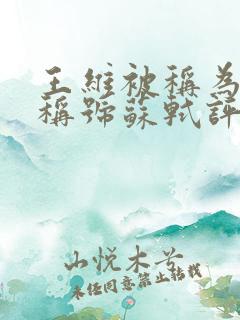 王維被稱為
稱號蘇軾評
山悅木兮
未经同意禁止转载